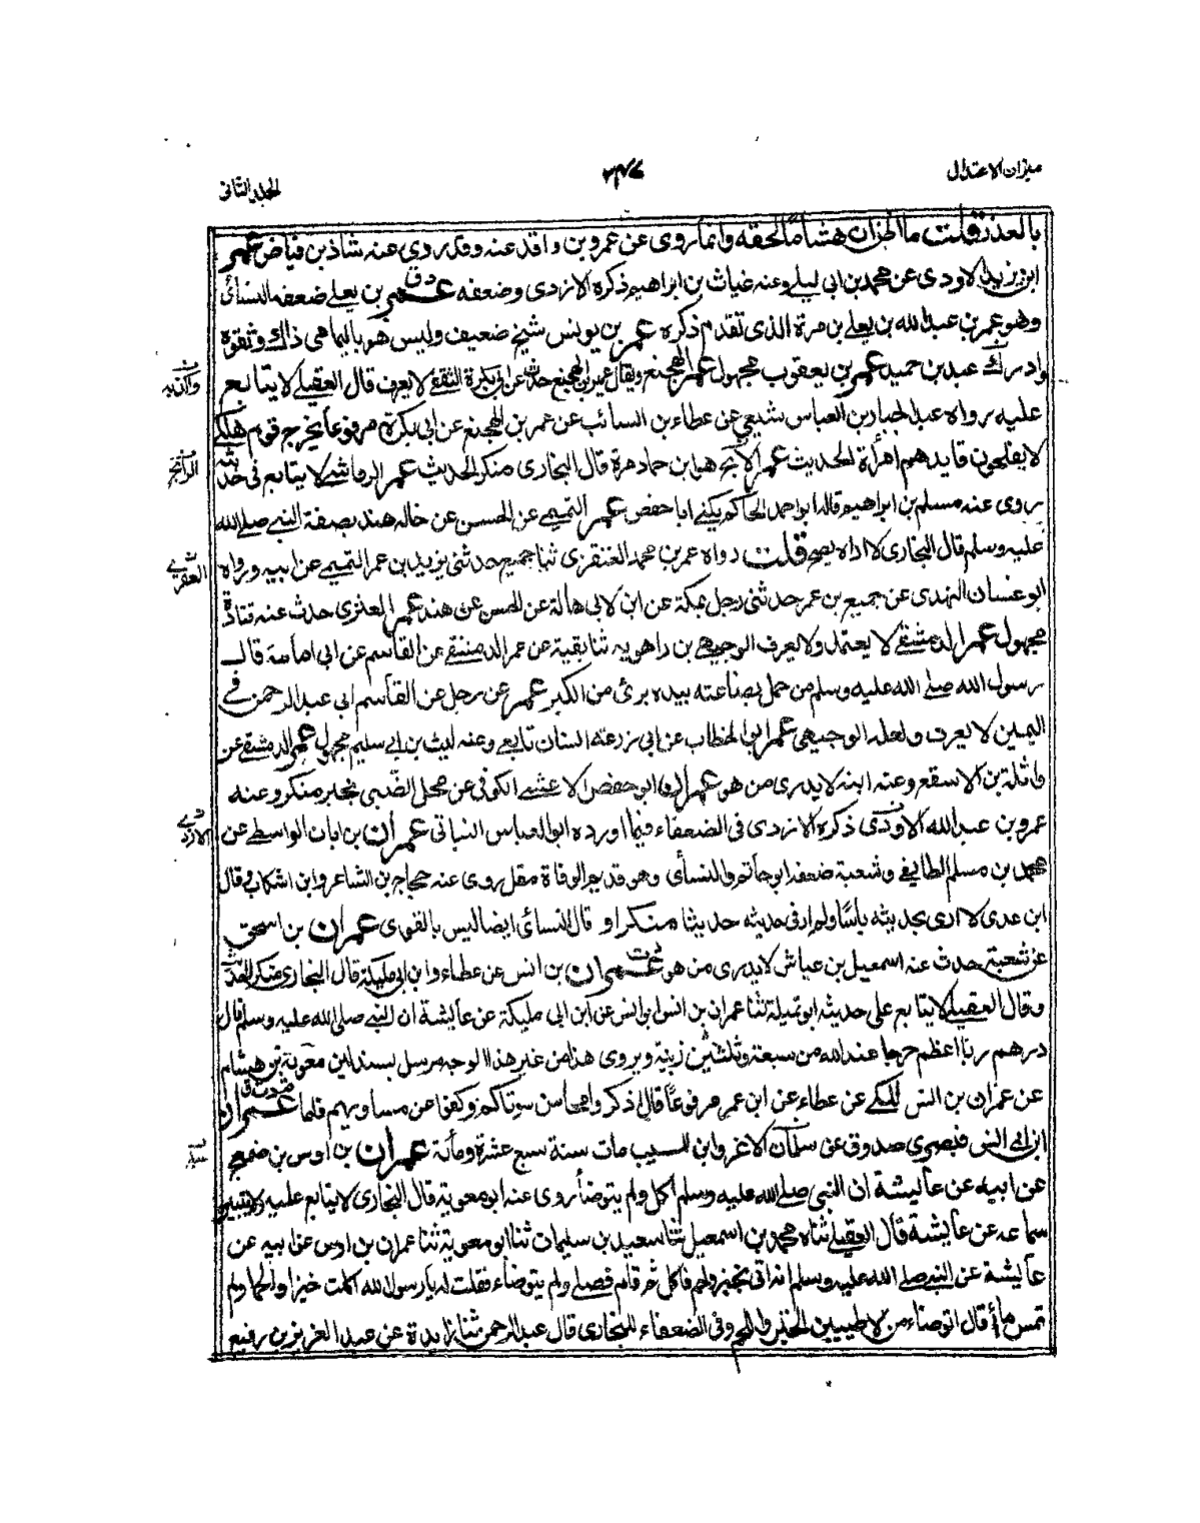 ميزان الاعتدال
٣٤٧
المجلد الثانى
بالعذر قلت ما الجزان هشاما لحقه وانما روى عن عمرو بن واقد عنه وقد روى عنه شاذ بن فياض عمر
ابن يزيد الاودى عن محمد بن ابى ليلے وعنه غياث بن ابراهيم ذكره الازدى وضعفه دق عمر بن يعلے ضعفه النسائى
وهو عمر بن عبد الله بن يعلے بن مرة الذى تقدم ذكره عمر بن يونس شيخ ضعيف وليس هو باليمامى ذاك وثقوه
وادرك عبد بن حميد عمر بن يعقوب مجهول عمر الهجنع ويقال عمر بن الهجنع حدث عن ابى بكرة الثقفے لا يعرف قال العقيلے لا يتابع
عليه رواه عبد الجبار بن العباس شيعي عن عطاء بن السائب عن عمر بن الهجنع عن ابى بكرة مرفوعا يخرج قوم هلكے
لا يفلحون قايدهم امرأة الحديث عمر الابح هو ابن حماد مرة قال البخارى منكر الحديث عمر الرقاشے لا يتابع فى حديثه
روى عنه مسلم بن ابراهيم قاله ابو احمد الحاكم يكنے ابا حفص عمر التميمے عن الحسن عن خاله هند بصفة النبے صلے الله
عليه وسلم قال البخارى لا اراه يصح قلت رواه عمر بن محمد العنقزى ثنا جميع حدثنى يزيد بن عمر التميمے عن ابيه ورواه
ابو غسان النهدى عن جميع بن عمر حدثنى رجل بمكة عن ابن لابى هالة عن الحسن عن هند عمر العنزى حدث عنه قتادة
مجهول عمر الدمشقے لا يعتمد ولا يعرف الوجيهے بن راهويه ثنا بقية عن عمر الدمشقے عن القاسم عن ابى امامة قال
رسول الله صلے الله عليه وسلم من حمل بضاعته بيده برئ من الكبر عمر عن رجل عن القاسم ابى عبد الرحمن فے
اليمين لا يعرف ولعله الوجيهى عمر ابو الخطاب عن ابى زرعة السنان تابعے وعنه ليث بن ابى سليم مجهول عمر الدمشقے عن
واثلة بن الاسقع وعنه ابنه لا يدرى من هو عمر ابو حفص الاعشے الكوفى عن محل الضبى بخبر منكر وعنه
عمرو بن عبد الله الاودى ذكره الازدى فى الضعفاء فيما اورده ابو العباس النباتى عمران بن ابان الواسطے عن
محمد بن مسلم الطايفے وشعبة ضعفه ابو حاتم والنسائى وهو قديم الوفاة مقل روى عنه حجاج بن الشاعر وابن اشكاب قال
ابن عدى لا ارى بحديثه باسا ولم ار فى حديثه حديثا منكرا و قال النسائى ايضا ليس بالقوى عمران بن اسحق
عن شعبة حدث عنه اسمعيل بن عياش لا يدرى من هو ت عمران بن انس عن عطاء وابن ابى مليكة قال البخارى منكر الحديث
وقال العقيلے لا يتابع على حديثه ابو تميلة ثنا عمران بن انس ابو انس عن ابن ابى مليكة عن عايشة ان النبے صلى الله عليه وسلم قال
درهم ربا اعظم حرجا عند الله من سبعة وثلثين زنية ويروى هذا من غير هذا الوجه مرسل بسند لين معوية بن هشام
عن عمران بن انس المكے عن عطاء عن ابن عمر مرفوعا قال اذكروا محاسن موتاكم وكفوا عن مساويهم فاما عمران
ابن ابى انس فبصرى صدوق عن سلمان الاغر وابن المسيب مات سنة سبع عشرة ومأة عمران بن اوس بن ضمعج
عن ابيه عن عايشة ان النبى صلے الله عليه وسلم اكل ولم يتوضأ روى عنه ابو معوية قال البخارى لا يتابع عليه ولا يتبين
سماعه عن عايشة قال العقيلے ثناه محمد بن اسمعيل ثنا سعيد بن سليمان ثنا ابو معوية ثنا عمران بن اوس عن ابيه عن
عايشة عن النبے صلے الله عليه وسلم انه اتى بخبز ولحم فاكل ثم قام فصلے ولم يتوضاء فقلت له يا رسول الله اكلت خبزا ولحما ولم
تمس ماء قال اتوضاء من الاطيبين الخبز واللحم وفى الضعفاء للبخارى قال عبد الرحمن ثنا زايدة عن عبد العزيز بن رفيع